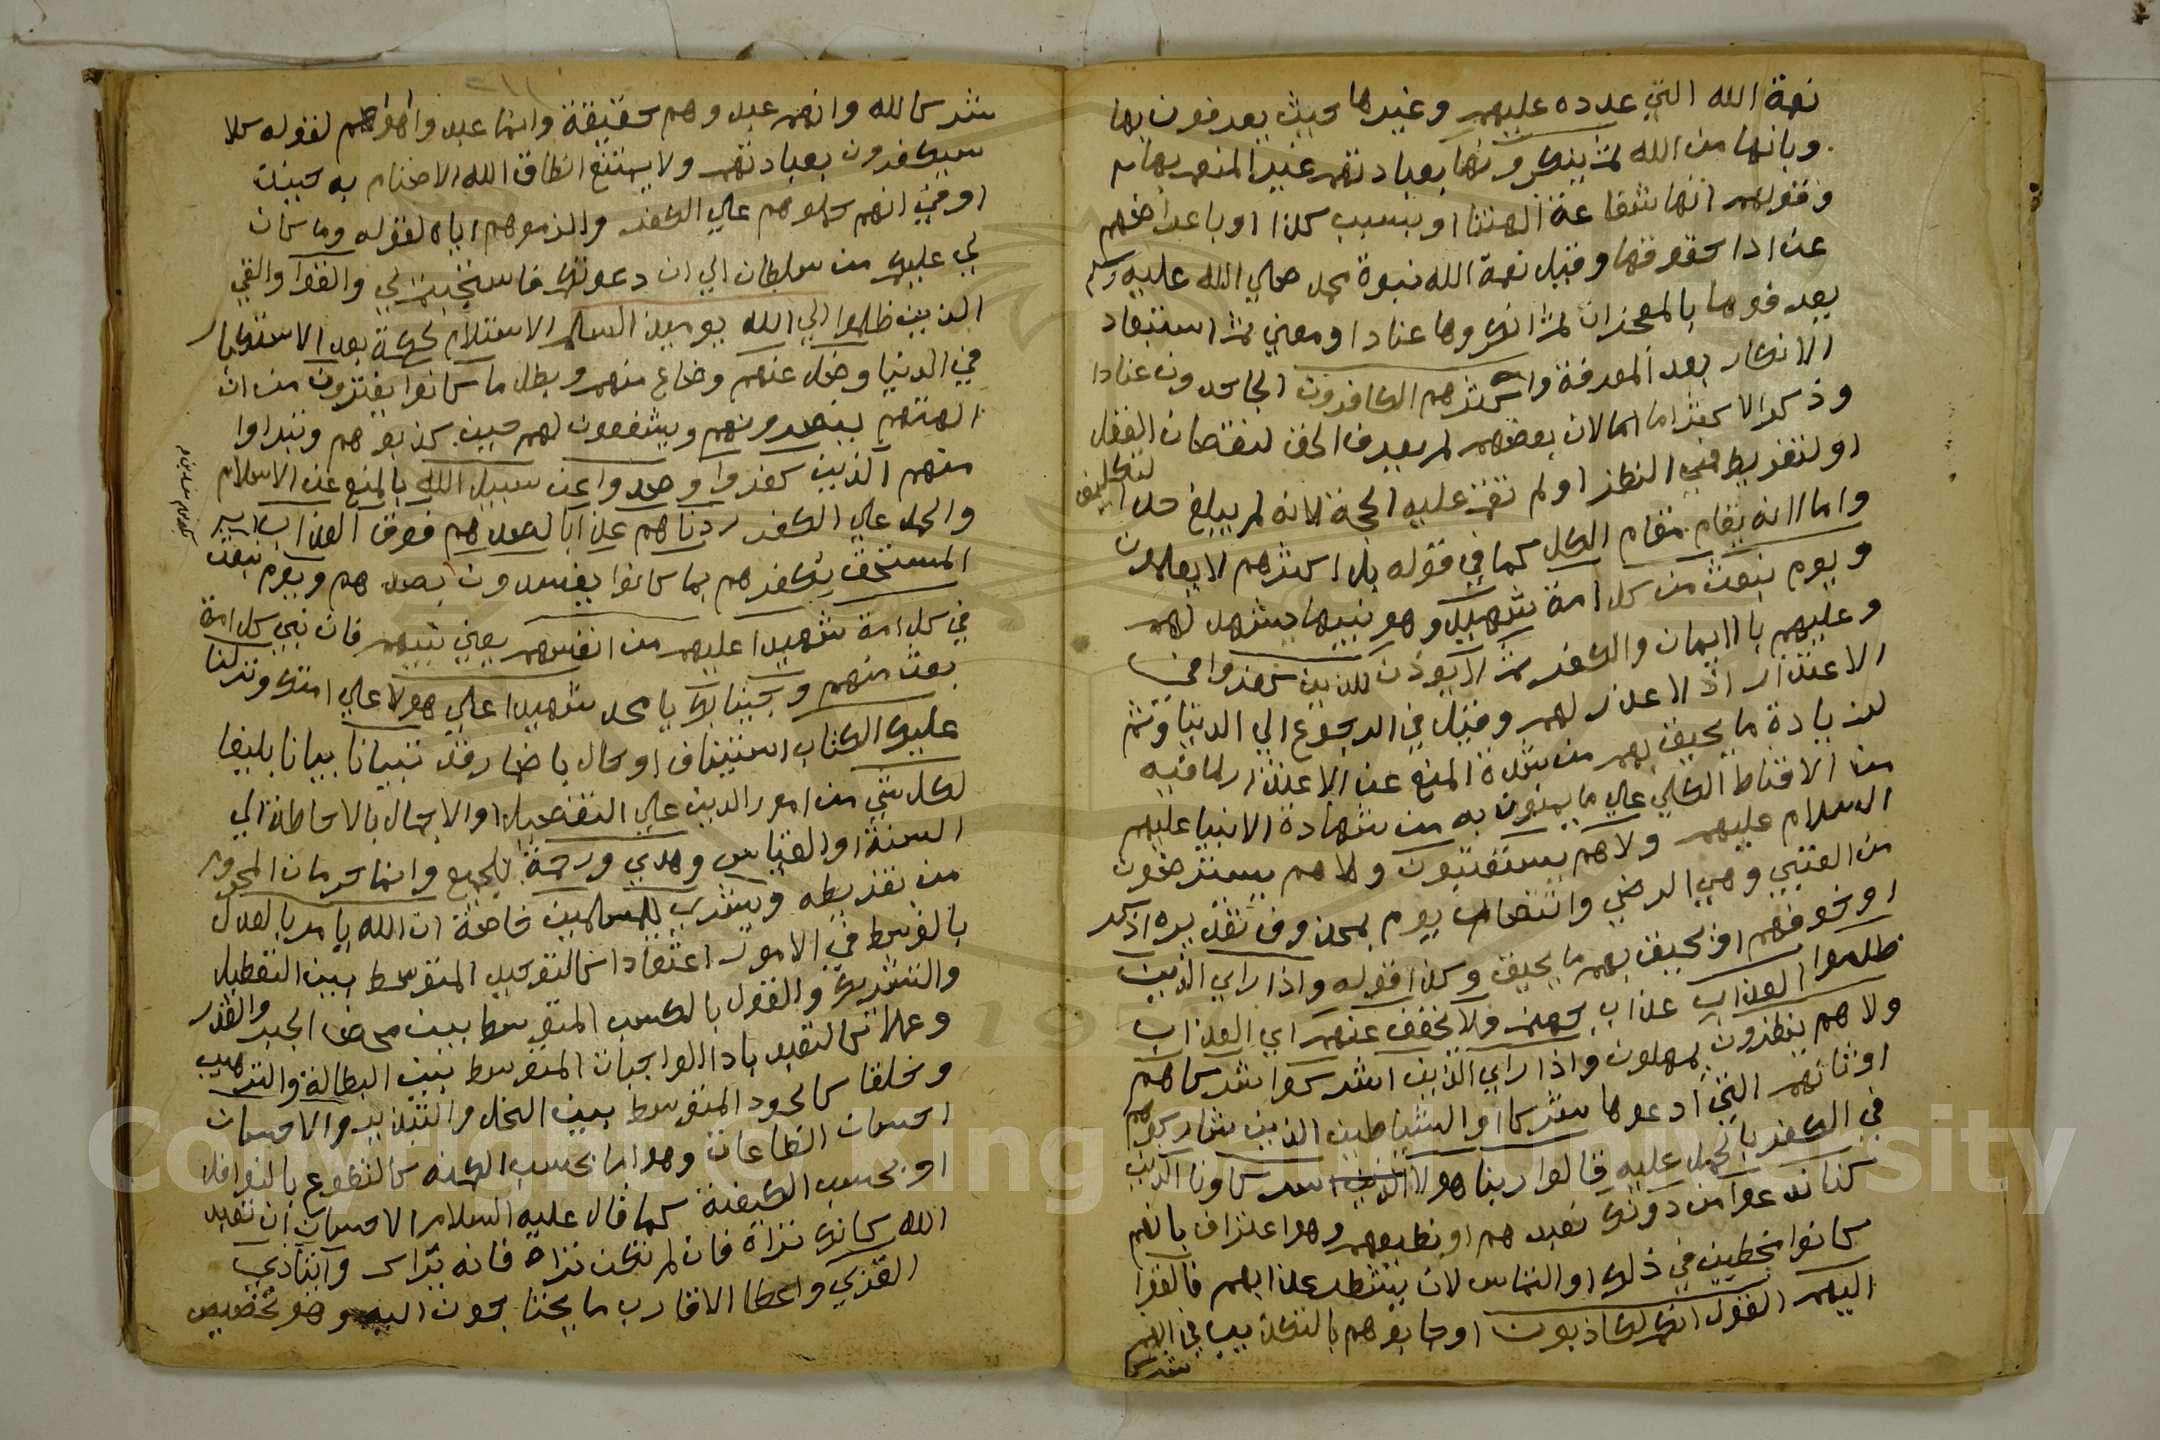 نعمة الله التي عدده عليهم وغيرها حيث يعرفون بها
وبانها من الله ثم ينكرونها بعبادتهم غير المنعم بها
وقولهم انها بشفاعة الهتنا او بسبب كذا او باعراضهم
عن ادا حقوقها وقيل نعمة الله نبوة محمد صلي الله عليه وسلم
يعرفوها بالمعجزات ثم انكروها عنادا ومعني ثم استبعاد
الانكار بعد المعرفة واكثرهم الكافرون الجاحدون عنادا
وذكر الاكثر اما لان بعضهم لم يعرف الحق لنقصان العقل
او لتفريط في النظر او لم تقم عليه الحجة لانه لم يبلغ حد التكليف
واما انه يقام مقام الكل كما في قوله بل اكثرهم لا يعلمون
ويوم نبعث من كل امة شهيدا وهو نبيها يشهد لهم
وعليهم بالايمان والكفر ثم لا يوذن للذين كفروا في
الاعتذار اذ لا عذر لهم وقيل في الرجوع الي الدنيا وثم
لزيادة ما يحيق بهم من شدة المنع عن الاعتذار لما فيه
من الاقناط الكلي علي ما يمنون به من شهادة الانبيا عليهم
السلام عليهم ولا هم يستعتبون ولا هم يسترضون
من العتبي وهي الرضي وانتصاب يوم بمحذوف تقديره اذكر
او خوفهم او يحيق بهم ما يحيق وكذا قوله واذا راي الذين
ظلموا العذاب عذاب جهنم ولا يخفف عنهم اي العذاب
ولا هم ينظرون يمهلون واذا راي الذين اشركوا شركاهم
اوثانهم التي ادعوها شركا او الشياطين الذين شاركوهم
في الكفر بالحمل عليه قالوا ربنا هولا شركاونا الذين
كنا ندعوا من دونك نعبدهم او نطيعهم وهو اعتراف بانهم
كانوا مخطين في ذلك او التماس لان يشطر عذابهم فالقوا
اليهم القول انكم لكاذبون اي اجابوهم بالتكذيب في انهم
شركا
شركا لله وانهم عبدوهم حقيقة وانما عبدوا اهواهم لقوله كلا
سيكفرون بعبادتهم ولا يمتنع انطاق الله الاصنام به حينئذ
او في انهم حملوهم علي الكفر والزموهم اياه لقوله وما كان
لي عليكم من سلطان الي ان دعوتكم فاستجبتم لي والقوا والقي
الذين ظلموا الي الله يوميذ السلم الاستلام لحكمة بعد الاستكبار
في الدنيا وضل عنهم وضاع منهم وبطل ما كانوا يفترون من ان
الهتهم ينصرونهم ويشفعون لهم حين كذبوهم وتبراوا
منهم الذين كفروا وصدوا عن سبيل الله بالمنع عن الاسلام
والحمل علي الكفر زدناهم عذابا لصدهم فوق العذاب
المستحق بكفرهم بما كانوا يفسدون بصدهم ويوم نبعث
في كل امة شهيدا عليهم من انفسهم يعني نبيهم فان نبي كل امة
بعث منهم وجينا بك يا محمد شهيدا علي هولا علي امتك ونزلنا
عليك الكتاب استيناف او حال باضمار قد تبيانا بيانا بليغا
لكل شي من امور الدين علي التفصيل او الاجمال بالاحاطة الي
السنة او القياس وهدي ورحمة للجميع وانما حرمان المحروم
من تفريطه وبشري للمسلمين خاصة ان الله يامر بالعدل
بالتوسط في الامور اعتقادا كالتوحيد المتوسط بين التعطيل
والتشريك والقول بالكسب المتوسط بين محض الجبر والقدر
وعملا كالتعبد بادا الواجبات المتوسط بين البطالة والترهب
وخلقا كالجود المتوسط بين البخل والتبذير والاحسان
احسان الطاعات وهو اما بحسب الكمية كالتطوع بالنوافل
او بحسب الكيفية كما قال عليه السلام الاحسان ان تعبد
الله كانك تراه فان لم تكن تراه فانه يراك وايتاذي
القربي واعطا الاقارب ما يحتاجون اليه وهو تخصيص
Copyright © King University